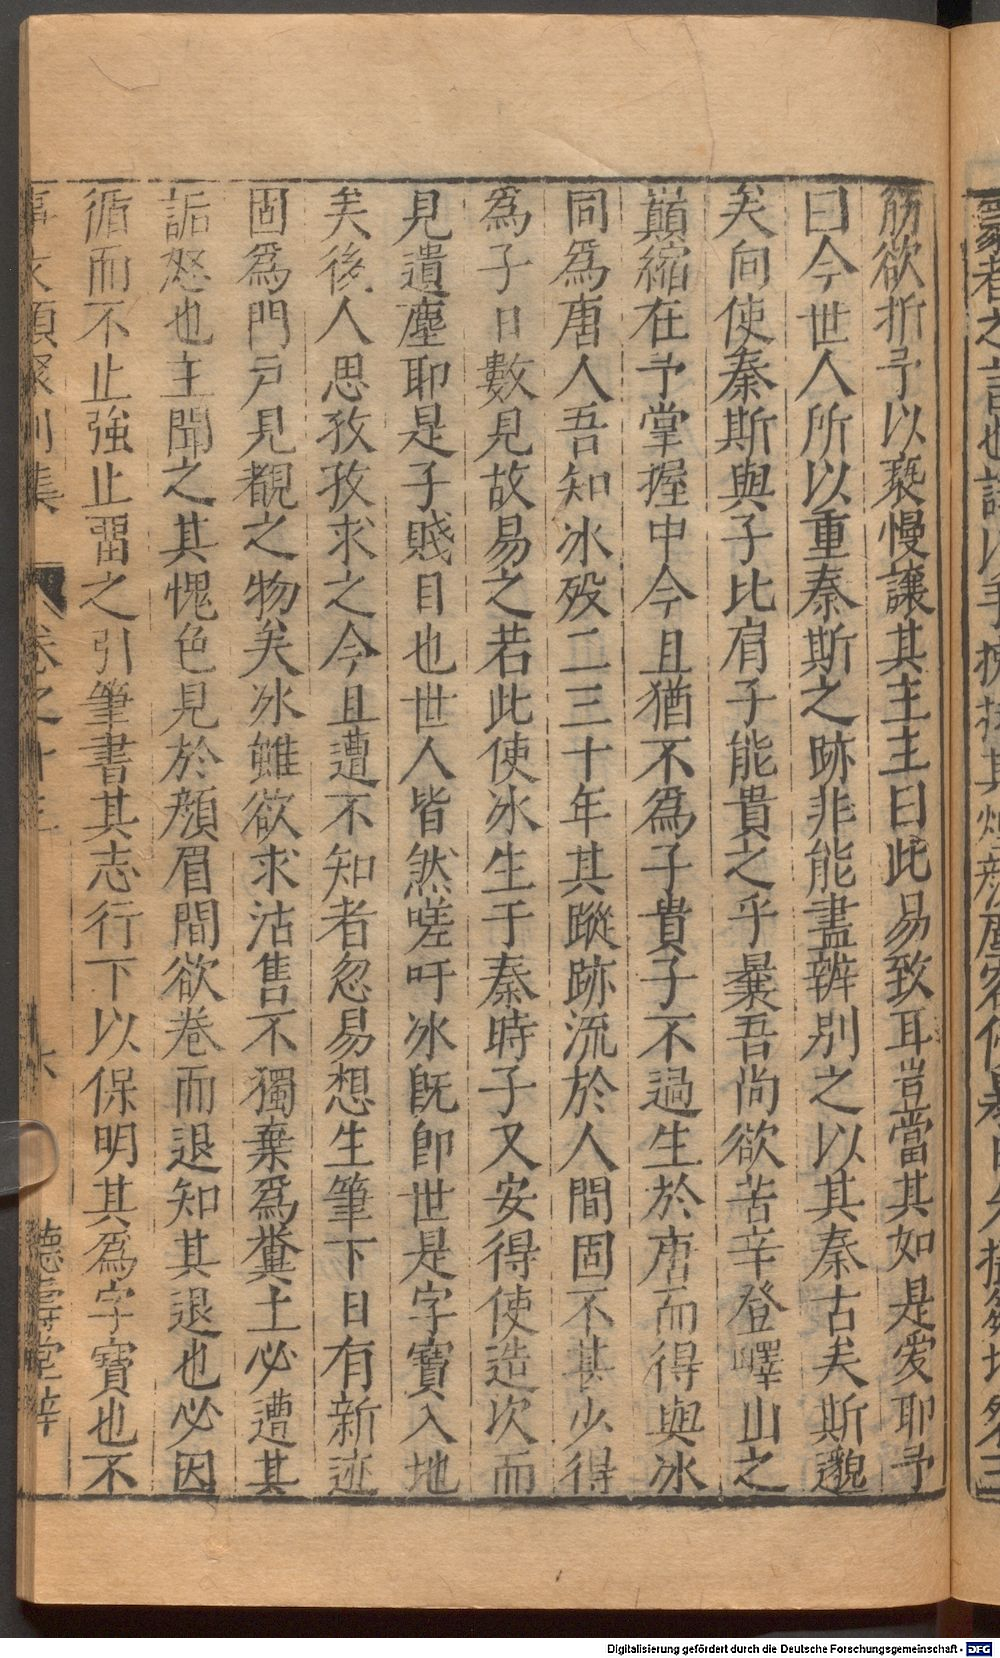 筋欲折予以褻慢讓其主主曰此易致耳豈當其如是愛耶予
曰今世人所以重秦斯之跡非能盡辨別之以其秦古矣斯邈
矣向使秦斯與子比肩子能貴之乎曩吾尚欲苦辛登嶧山之
巔縮在予掌握中今且猶不為子貴子不過生於唐而得與冰
同爲唐人吾知冰歿二三十年其蹤跡流於人間固不甚少得
為子日數見故易之若此使冰生于秦時子又安得使造次而
見遺塵耶是子賤目也世人皆然嗟吁冰既卽世是字寶入地
矣後人思孜孜求之今且遭不知者忽易想生筆下日有新迹
固爲門戸見覩之物矣冰雖欲求沽售不獨棄爲糞土必遭其
詬怒也主聞之其愧色見於顏眉間欲卷而退知其退也必因
循而不止強止畱之引筆書其志行下以保明其爲字寶也不
集 卷之十三
德壽堂梓
Digitalisierung gefördert durch die Deutsche Forschungsgemeinschaft - DFG